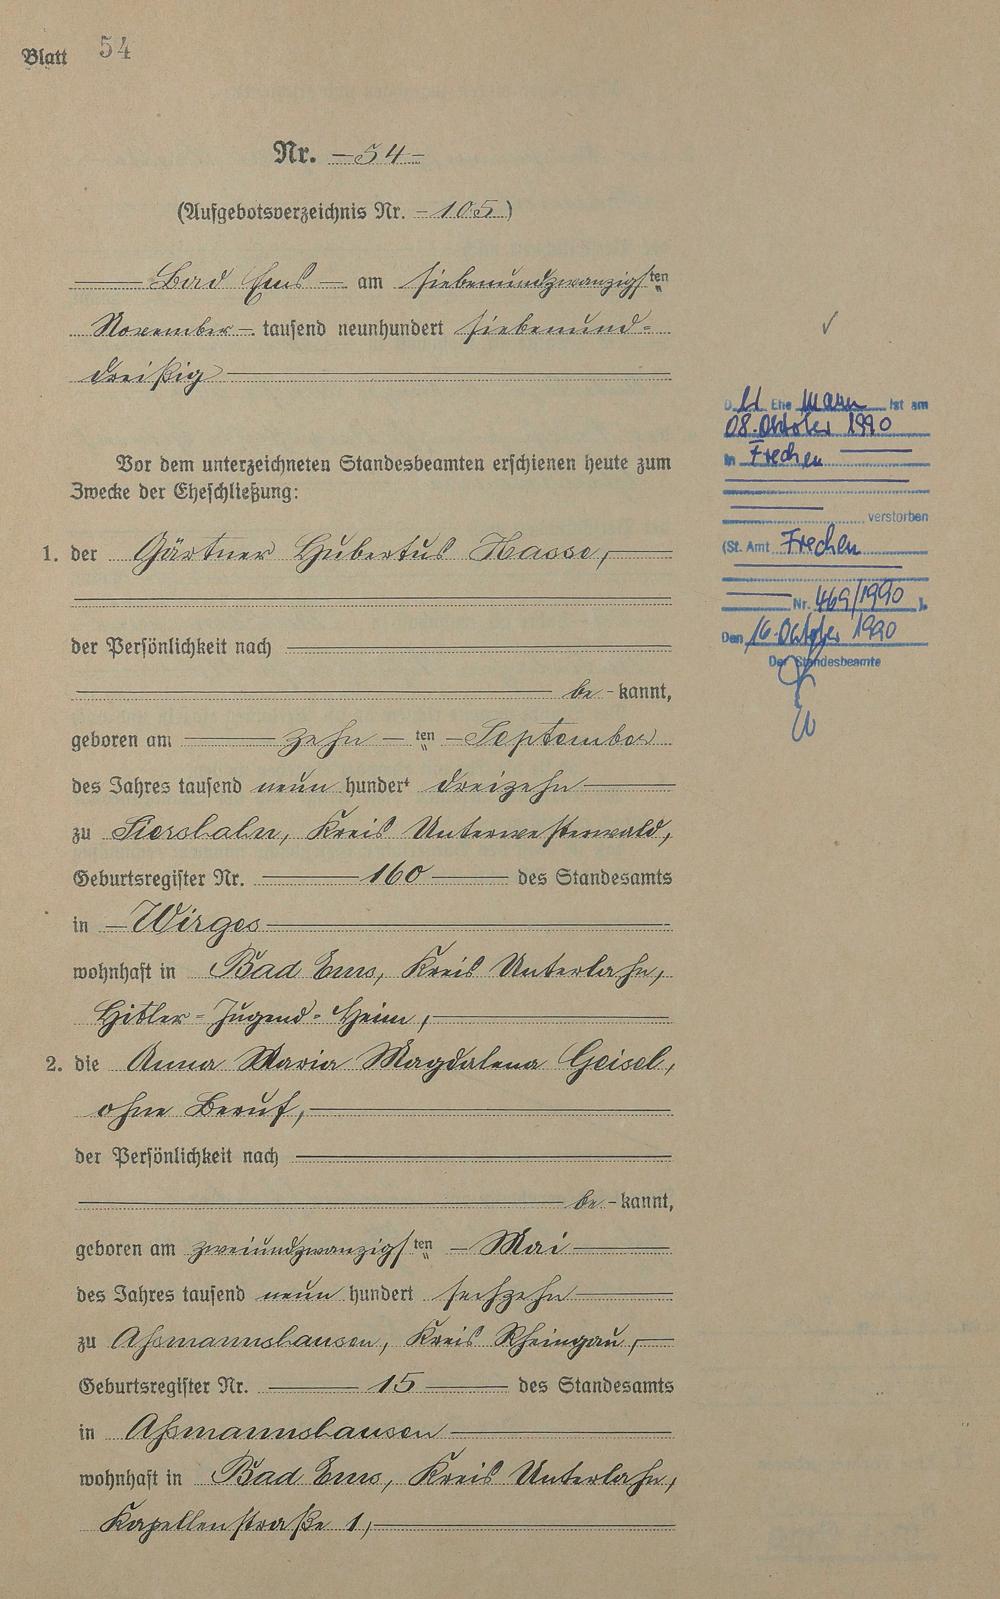 Blatt 54
Nr. -54-
(Aufgebotsverzeichnis Nr. -105)
Bad Ems - am siebenundzwanzigsten
November - tausend neunhundert siebenund-
dreißig
Vor dem unterzeichneten Standesbeamten erschienen heute zum
Zwecke der Eheschließung:
1. der Gärtner Hubertus Hasse,
der Persönlichkeit nach
be-kannt,
geboren am zehn - ten - September
des Jahres tausend neun hundert dreizehn
zu Siershahn, Kreis Unterwesterwald,
Geburtsregister Nr. 160 des Standesamts
in - Wirges
wohnhaft in Bad Ems, Kreis Unterlahn,
Hitler-Jugend-Heim,
2. die Anna Maria Magdalena Geisel,
ohne Beruf,
der Persönlichkeit nach
be-kannt,
geboren am zweiundzwanzigsten - Mai
des Jahres tausend neun hundert sechzehn
zu Aßmannshausen, Kreis Rheingau,
Geburtsregister Nr. 15 des Standesamts
in Aßmannshausen
wohnhaft in Bad Ems, Kreis Unterlahn,
Kapellenstraße 1,
Ehe mann ist am
08. Oktober 1990
in Frechen
verstorben
(St. Amt Frechen
Nr. 469/1990 ).
Den 16. Oktober 1990
Der Standesbeamte